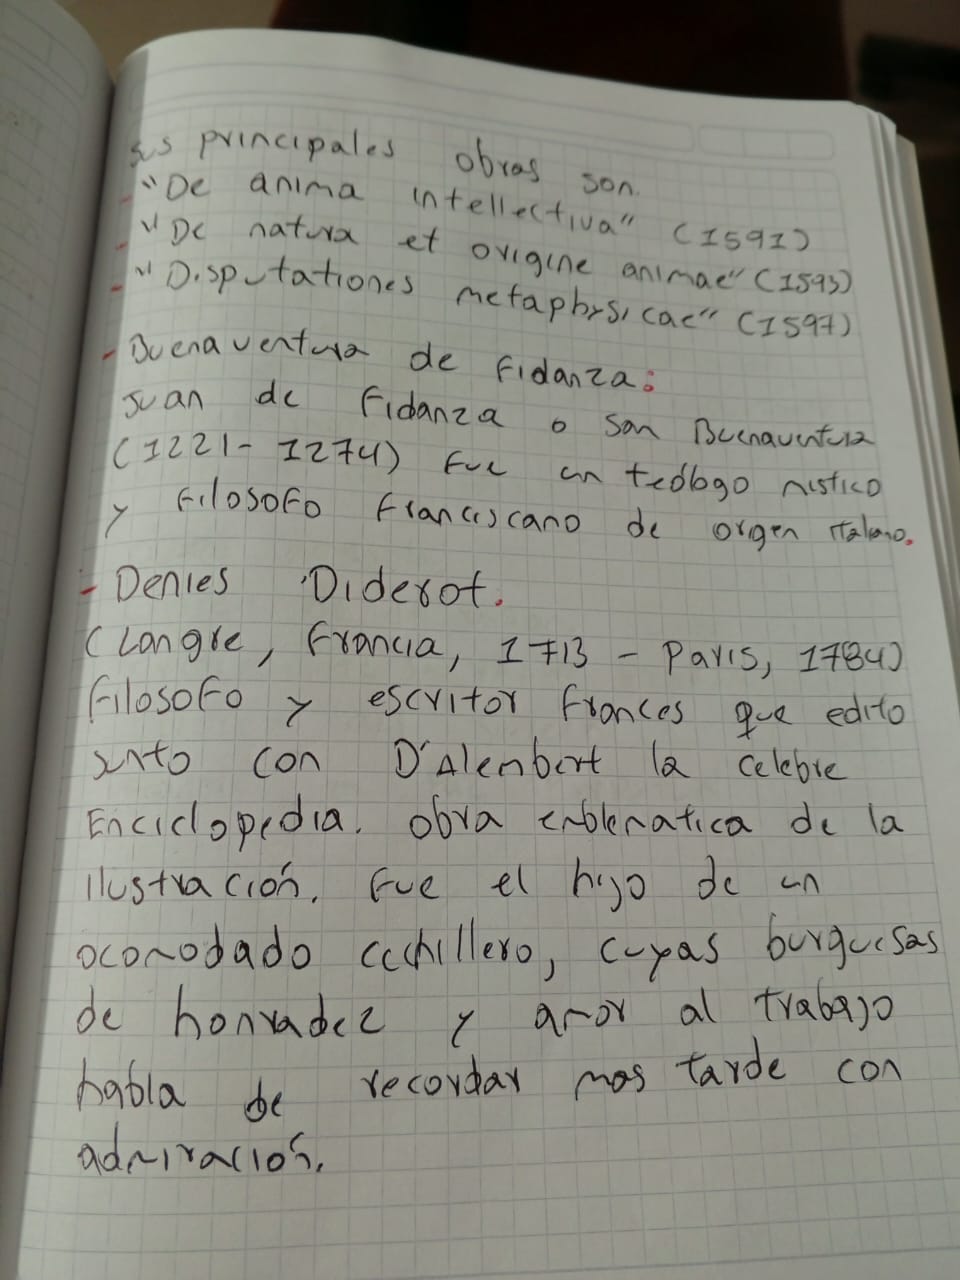 sus principales obras son.
- "De anima intellectiva" (1591)
- "De natura et origine animae" (1593)
- "Disputationes metaphysicae" (1597)
- Buenaventura de Fidanza:
Juan de Fidanza o San Buenaventura
(1221-1274) Fue un teólogo mistico
y Filosofo Franciscano de origen italiano.
- Denies Diderot.
(Langre, Francia, 1713 - Paris, 1784)
Filosofo y escritor Frances que edito
junto con D'Alenbert la celebre
Enciclopedia. obra enblematica de la
ilustración. Fue el hijo de un
acomodado cuchillero, cuyas burguesas
de honradez y amor al trabajo
habla de recordar mas tarde con
admiración.